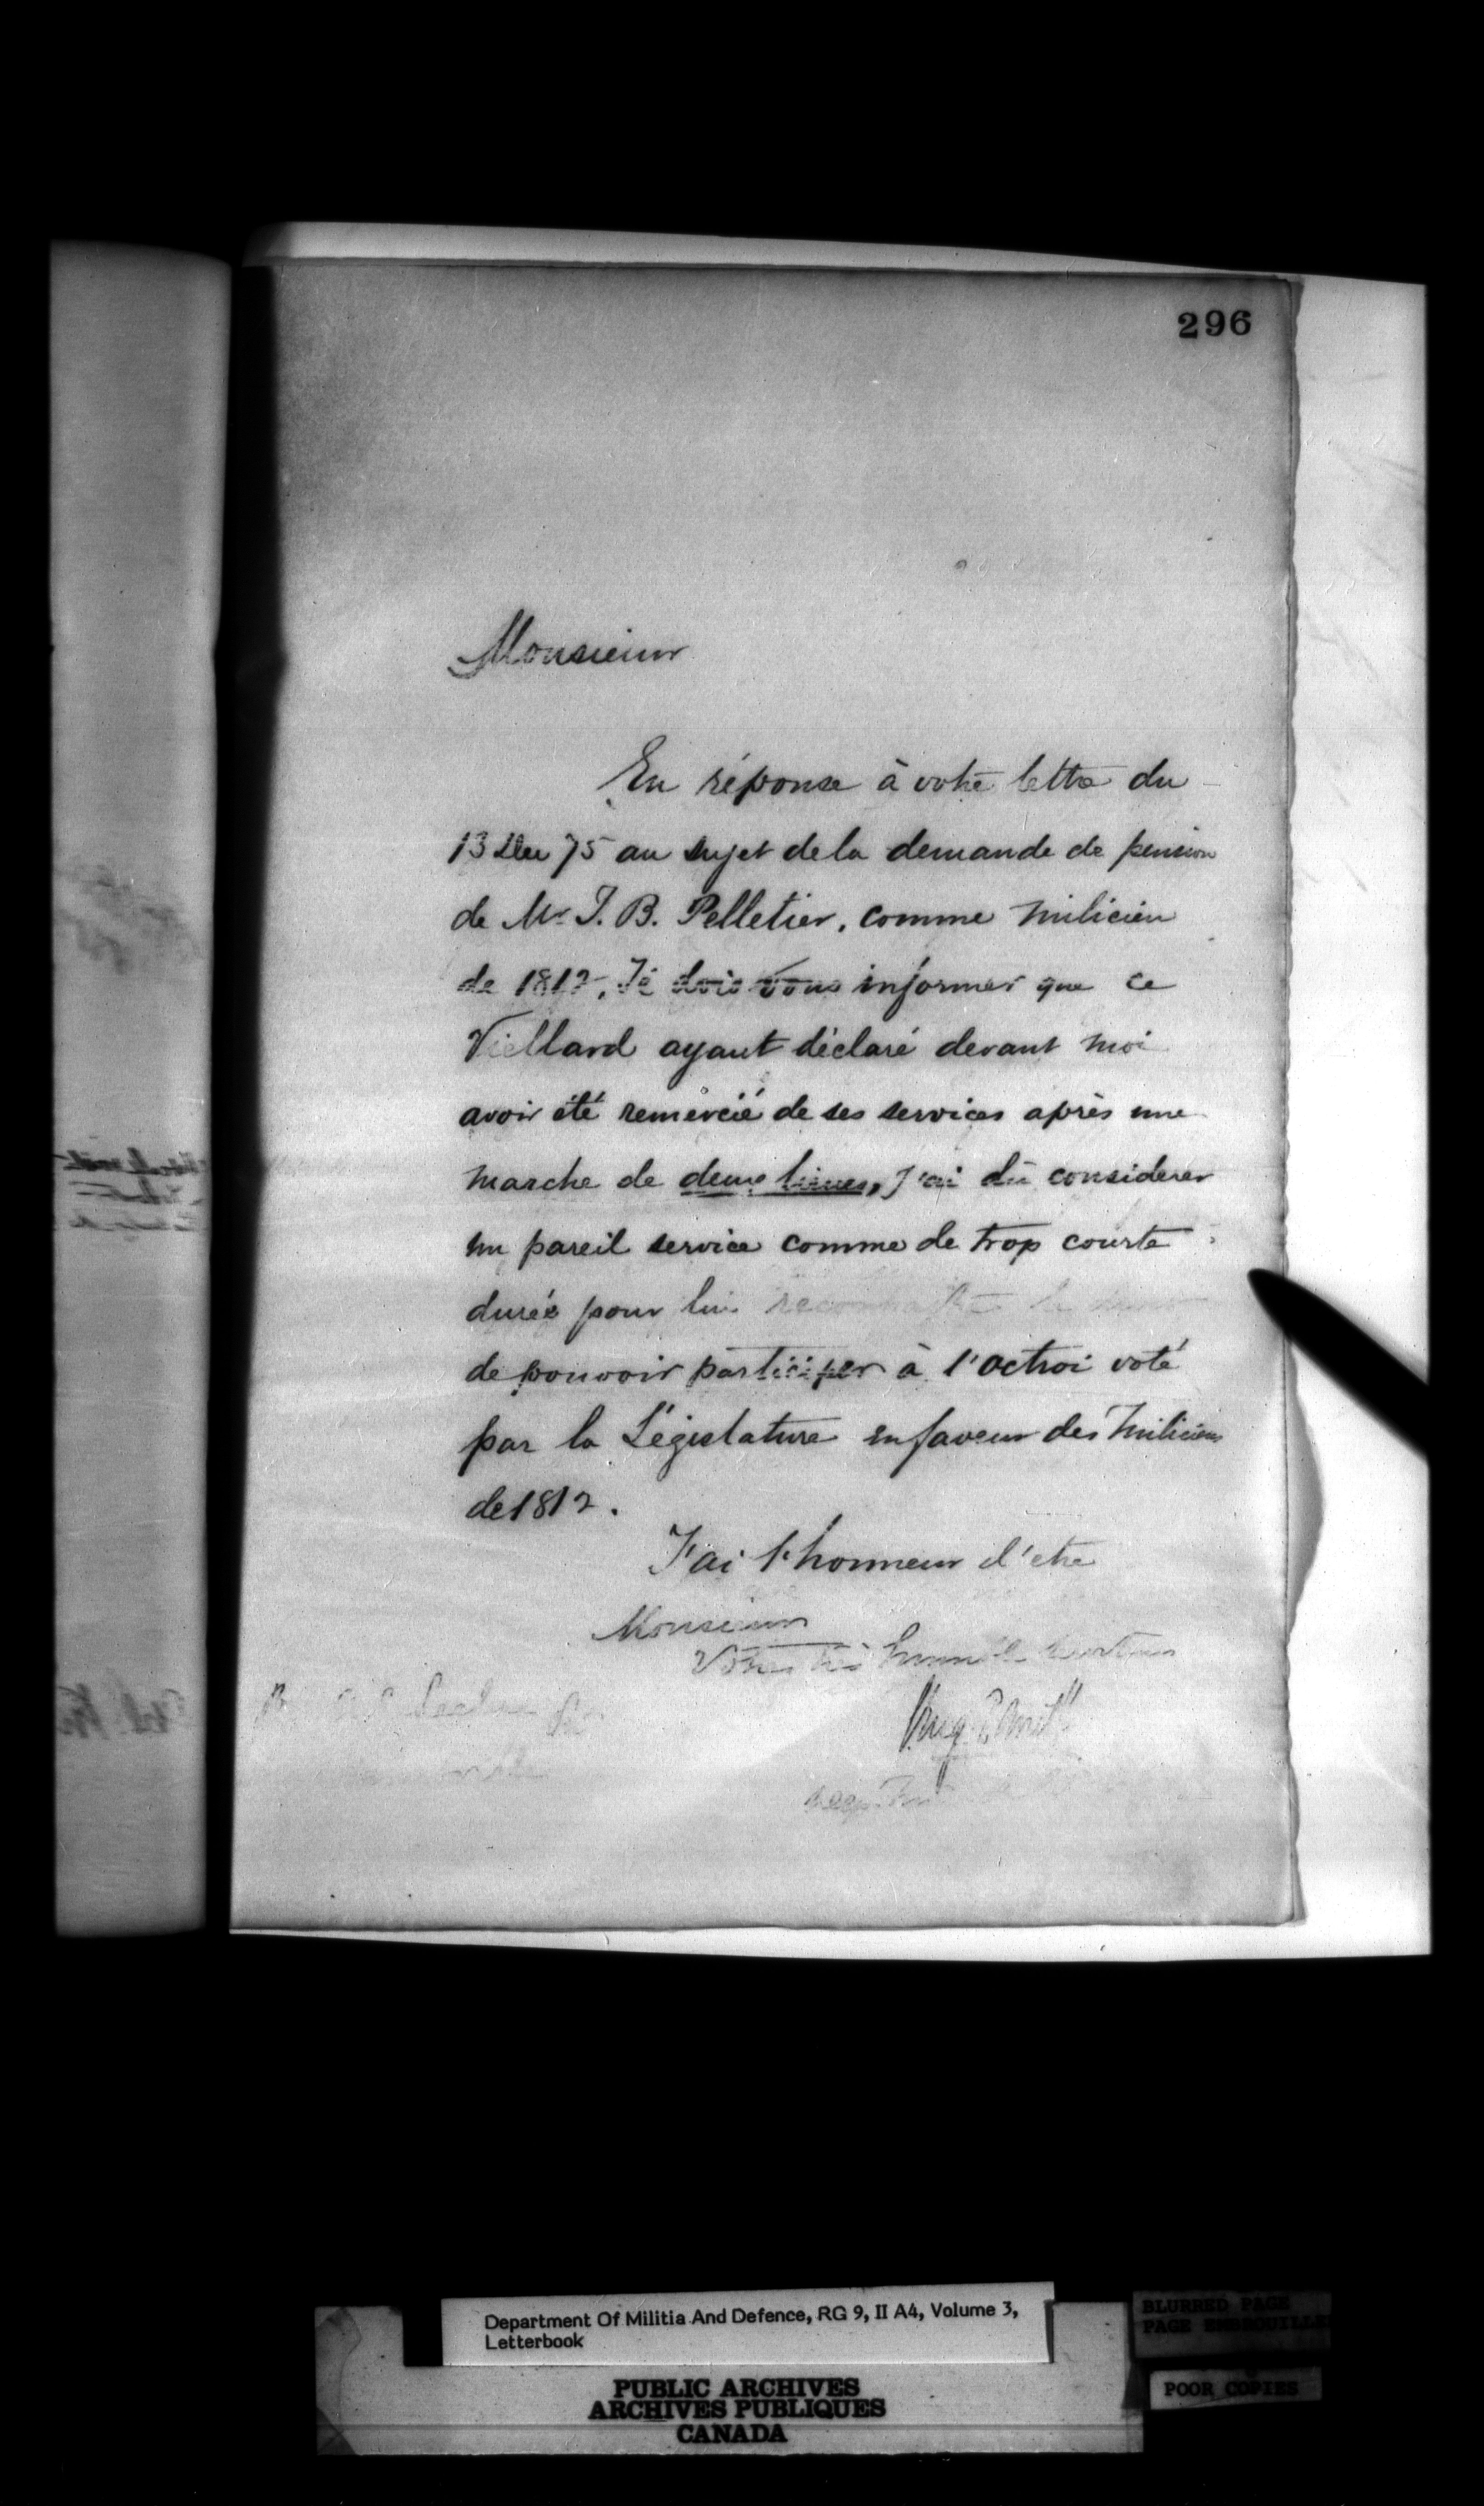 296
Monsieur
En réponse à votre lettre du
13 Dec 75 au sujet de la demande de pension
de Mr J. B. Pelletier, comme milicien
de 1812, Je dois vous informer que ce
Viellard ayant déclaré devant moi
avoir été remercié de ses services après une
marche de deux lieues, j'ai dû considerer
un pareil service comme de trop courte
durée pour lui reconnaître le
de pouvoir participer à l'octroi voté
par la Législature en faveur des Miliciens
de 1812.
J'ai l'honneur d'etre
Monsieur
Votre très humble serviteur
Department Of Militia And Defence, RG 9, II A4, Volume 3,
Letterbook
PUBLIC ARCHIVES
ARCHIVES PUBLIQUES
CANADA
BLURRED PAGE
PAGE EMBROUILLE
POOR COPIES